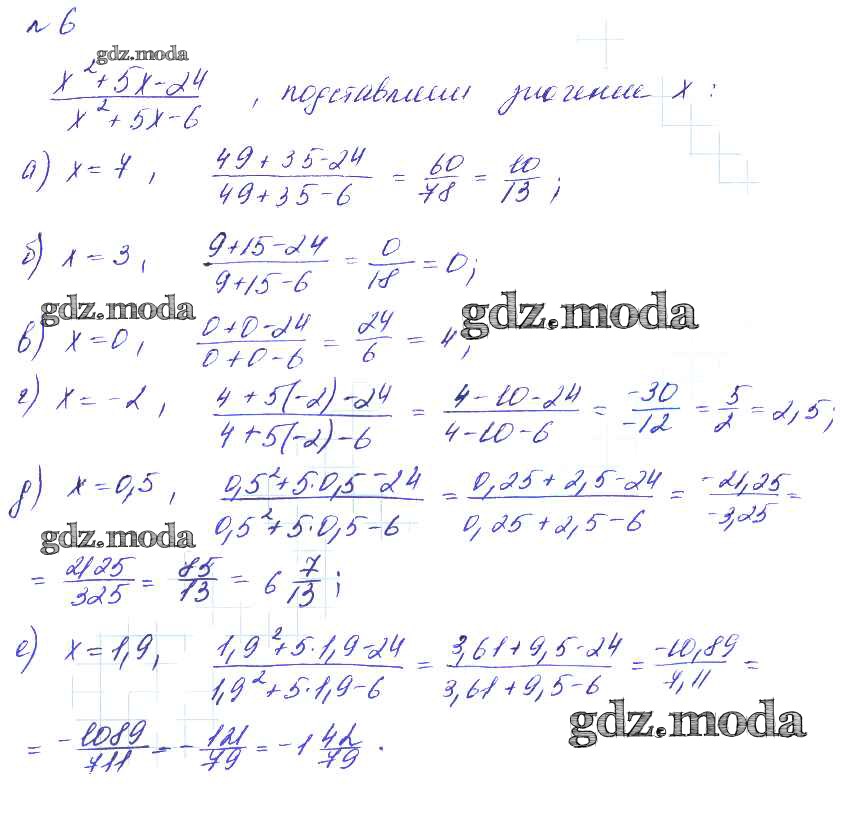 № 6
gdz.moda
(x²+5x-24)/(x²+5x-6) , подставляем значение x :
а) x = 7 , (49+35-24)/(49+35-6) = 60/78 = 10/13 ;
б) x = 3 , (9+15-24)/(9+15-6) = 0/18 = 0;
gdz.moda gdz.moda
в) x = 0 , (0+0-24)/(0+0-6) = 24/6 = 4 ;
г) x = -2 , (4+5(-2)-24)/(4+5(-2)-6) = (4-10-24)/(4-10-6) = -30/-12 = 5/2 = 2,5;
д) x = 0,5 , (0,5²+5·0,5-24)/(0,5²+5·0,5-6) = (0,25+2,5-24)/(0,25+2,5-6) = -21,25/-3,25 =
gdz.moda
= 2125/325 = 85/13 = 6 7/13 ;
е) x = 1,9 , (1,9²+5·1,9-24)/(1,9²+5·1,9-6) = (3,61+9,5-24)/(3,61+9,5-6) = -10,89/7,11 =
gdz.moda
= -1089/711 = -121/79 = -1 42/79 .